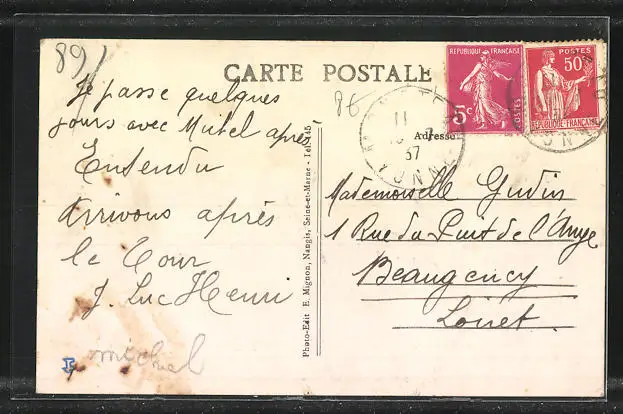 89)
CARTE POSTALE
86
Je passe quelques
jours avec Michel après
Entendu
Arrivons après
le Tour
J. Luc Henri
michel
Photo-Edit E. Mignon, Nangis, Seine-et-Marne - Tél. 145
RÉPUBLIQUE FRANÇAISE
5c
POSTES
POSTES
50c
RÉPUBLIQUE FRANÇAISE
11
37
YONNE
Adresse
Mademoiselle Gudin
1 Rue du Puit de l'Ange
Beaugency
Loiret.